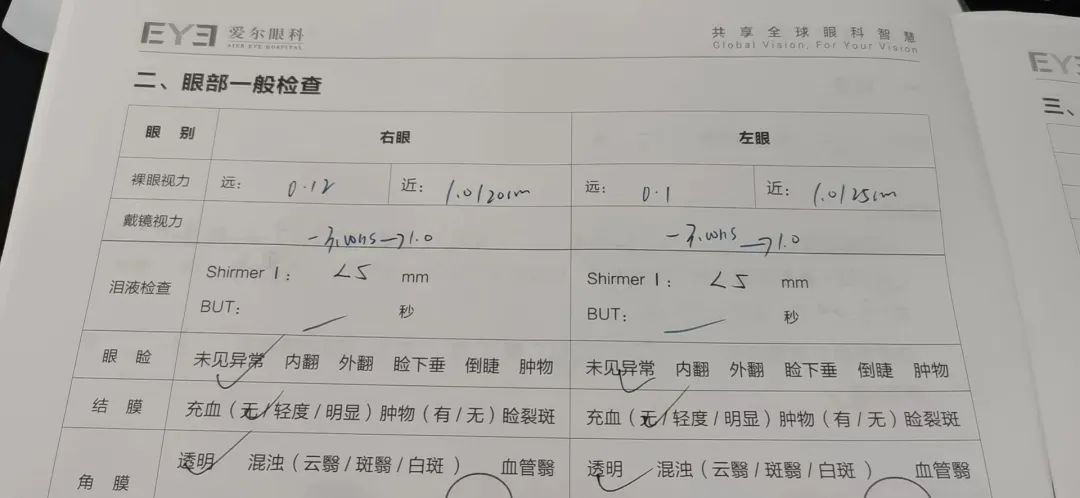 EYE 爱尔眼科
AIER EYE HOSPITAL
共享全球眼科智慧
Global Vision, For Your Vision
EYE
二、眼部一般检查
三、
眼 别 右眼 左眼
裸眼视力 远: 0.12 近: 1.0/20cm 远: 0.1 近: 1.0/25cm
戴镜视力 -3.00DS→1.0 -3.00DS→1.0
泪液检查
Shirmer I: <5 mm Shirmer I: <5 mm
BUT: 秒 BUT: 秒
眼 睑 未见异常 内翻 外翻 睑下垂 倒睫 肿物 未见异常 内翻 外翻 睑下垂 倒睫 肿物
结 膜 充血(无/轻度/明显)肿物(有/无)睑裂斑 充血(无/轻度/明显)肿物(有/无)睑裂斑
角 膜 透明 混浊(云翳/斑翳/白斑) 血管翳 透明 混浊(云翳/斑翳/白斑) 血管翳